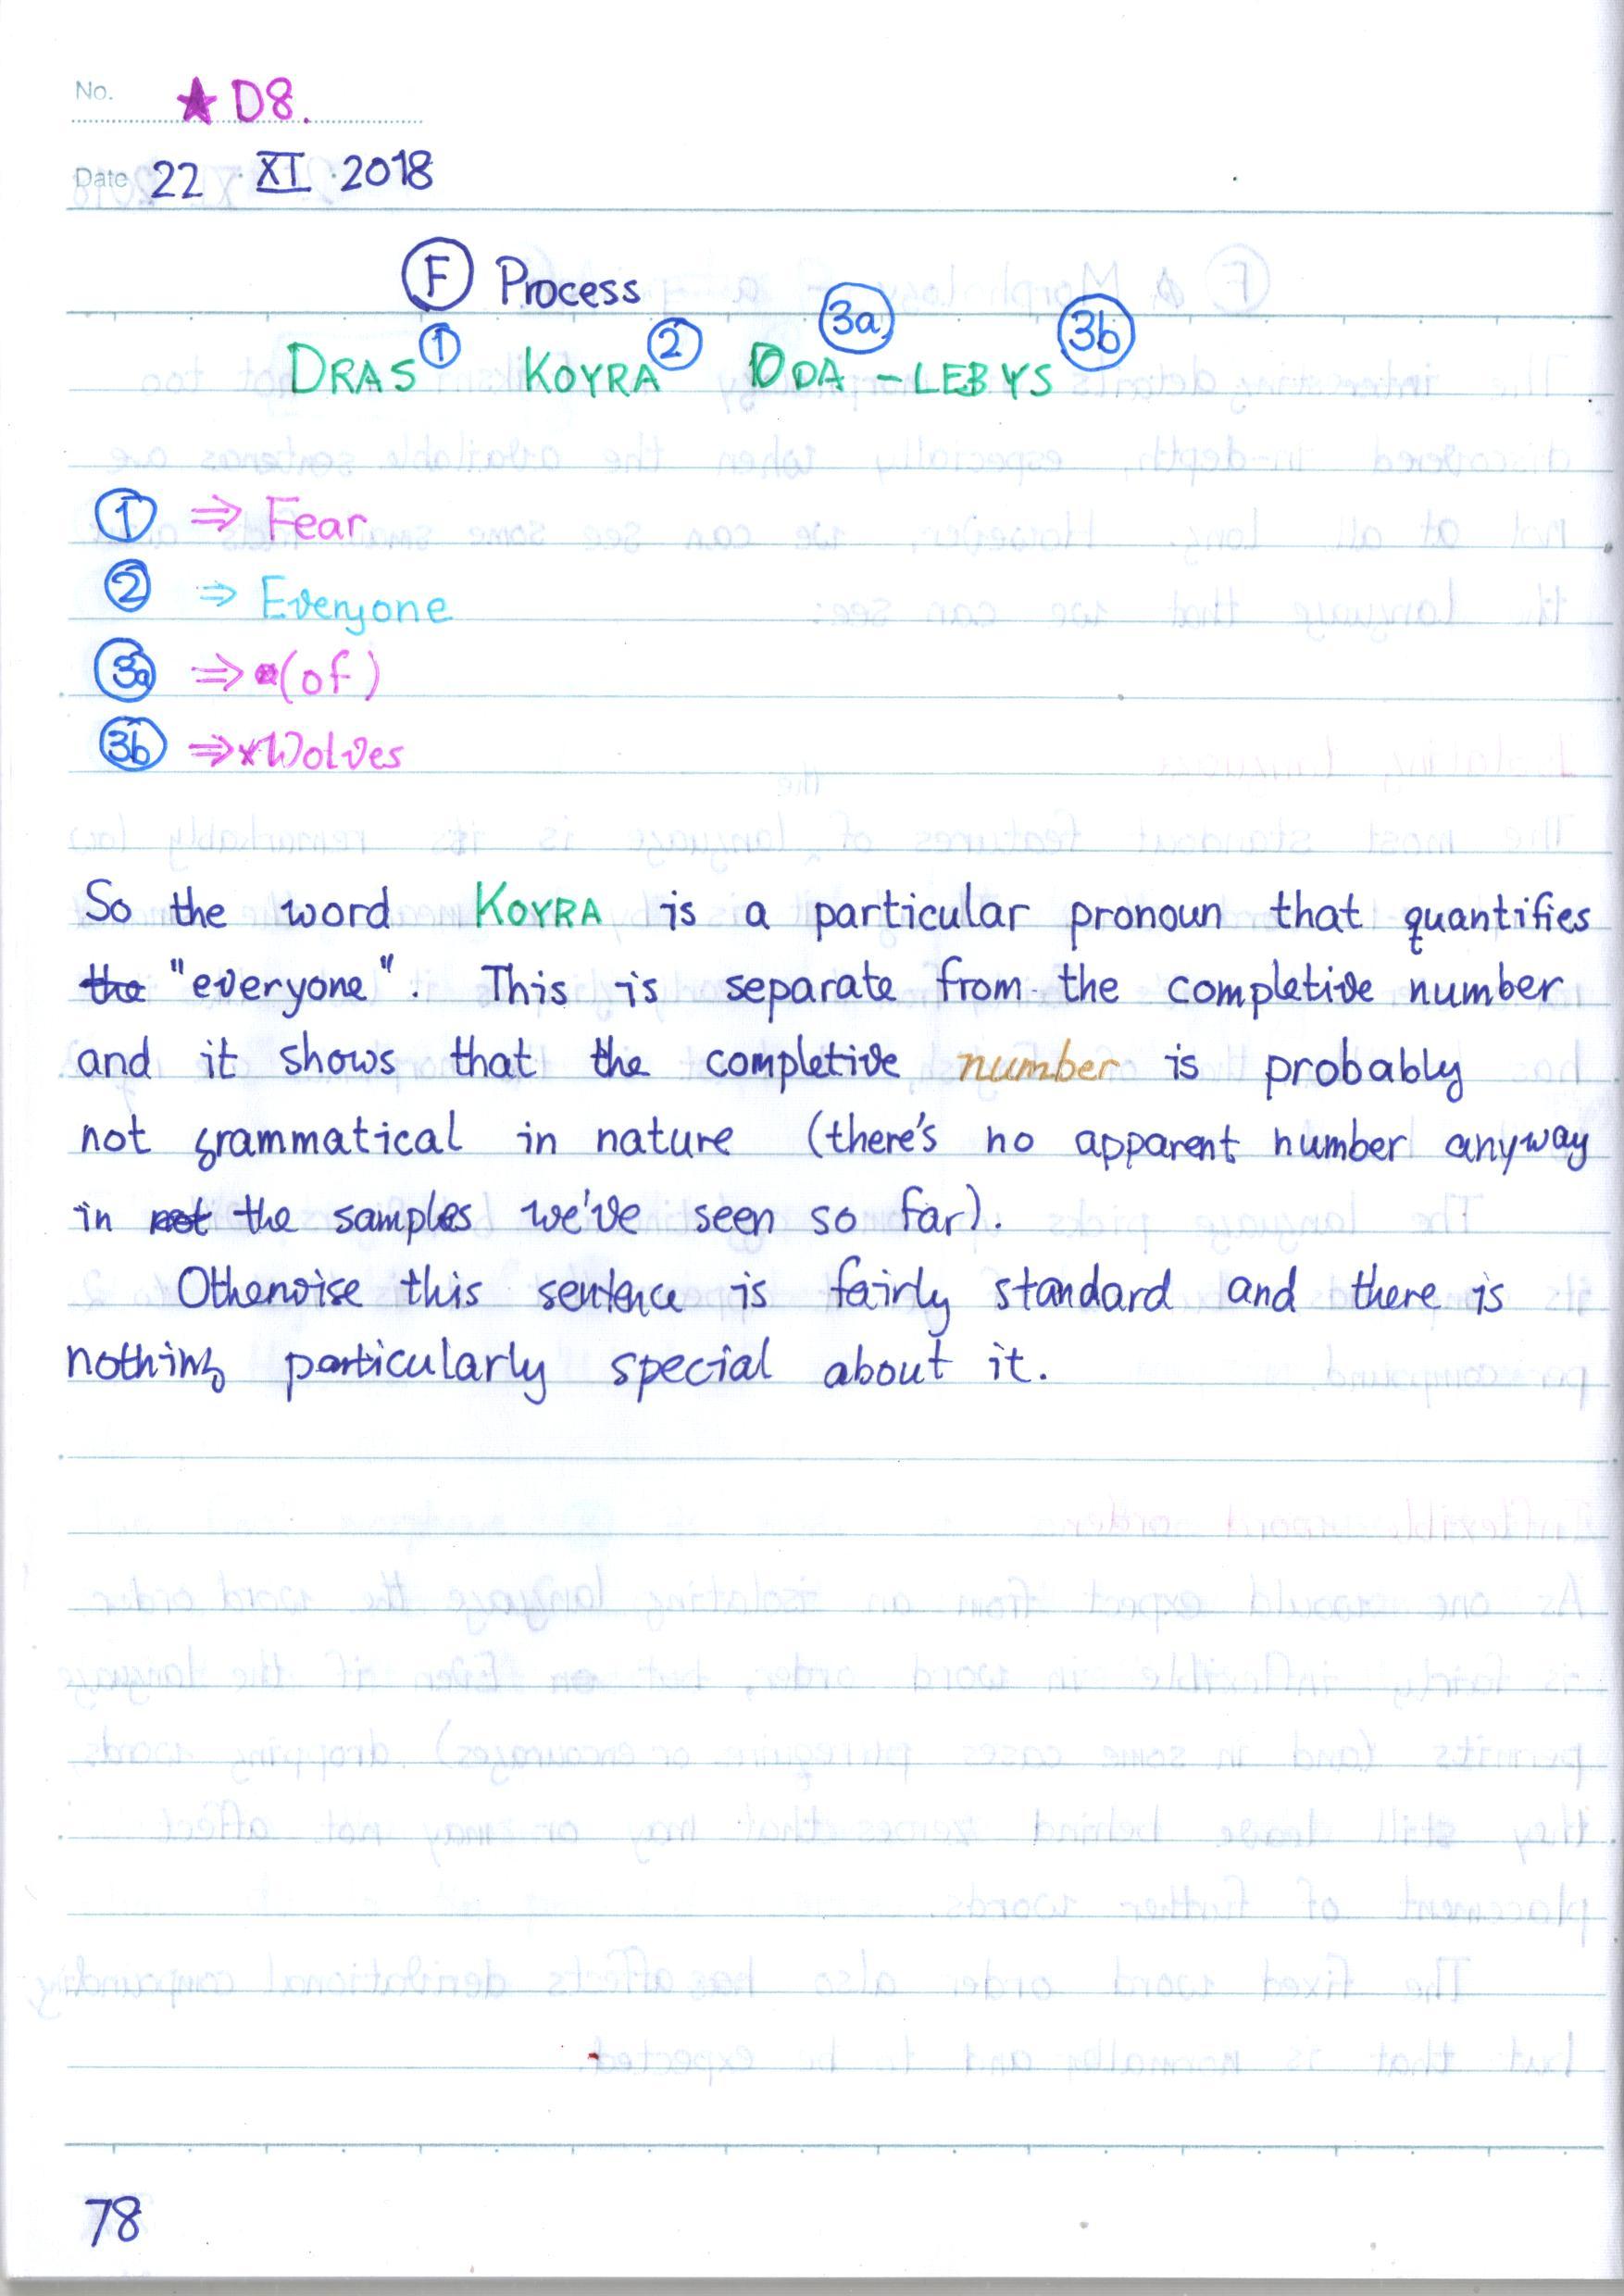 No. ★ D8.
Date 22 · XI · 2018
Ⓕ Process
DRAS ① KOYRA ② ODA 3a - LEBYS 3b
① ⇒ Fear
② ⇒ Everyone
3a ⇒ (of)
3b ⇒ Wolves
So the word KOYRA is a particular pronoun that quantifies
the "everyone". This is separate from the completive number
and it shows that the completive number is probably
not grammatical in nature (there's no apparent number anyway
in not the samples we've seen so far).
Otherwise this sentence is fairly standard and there is
nothing particularly special about it.
78